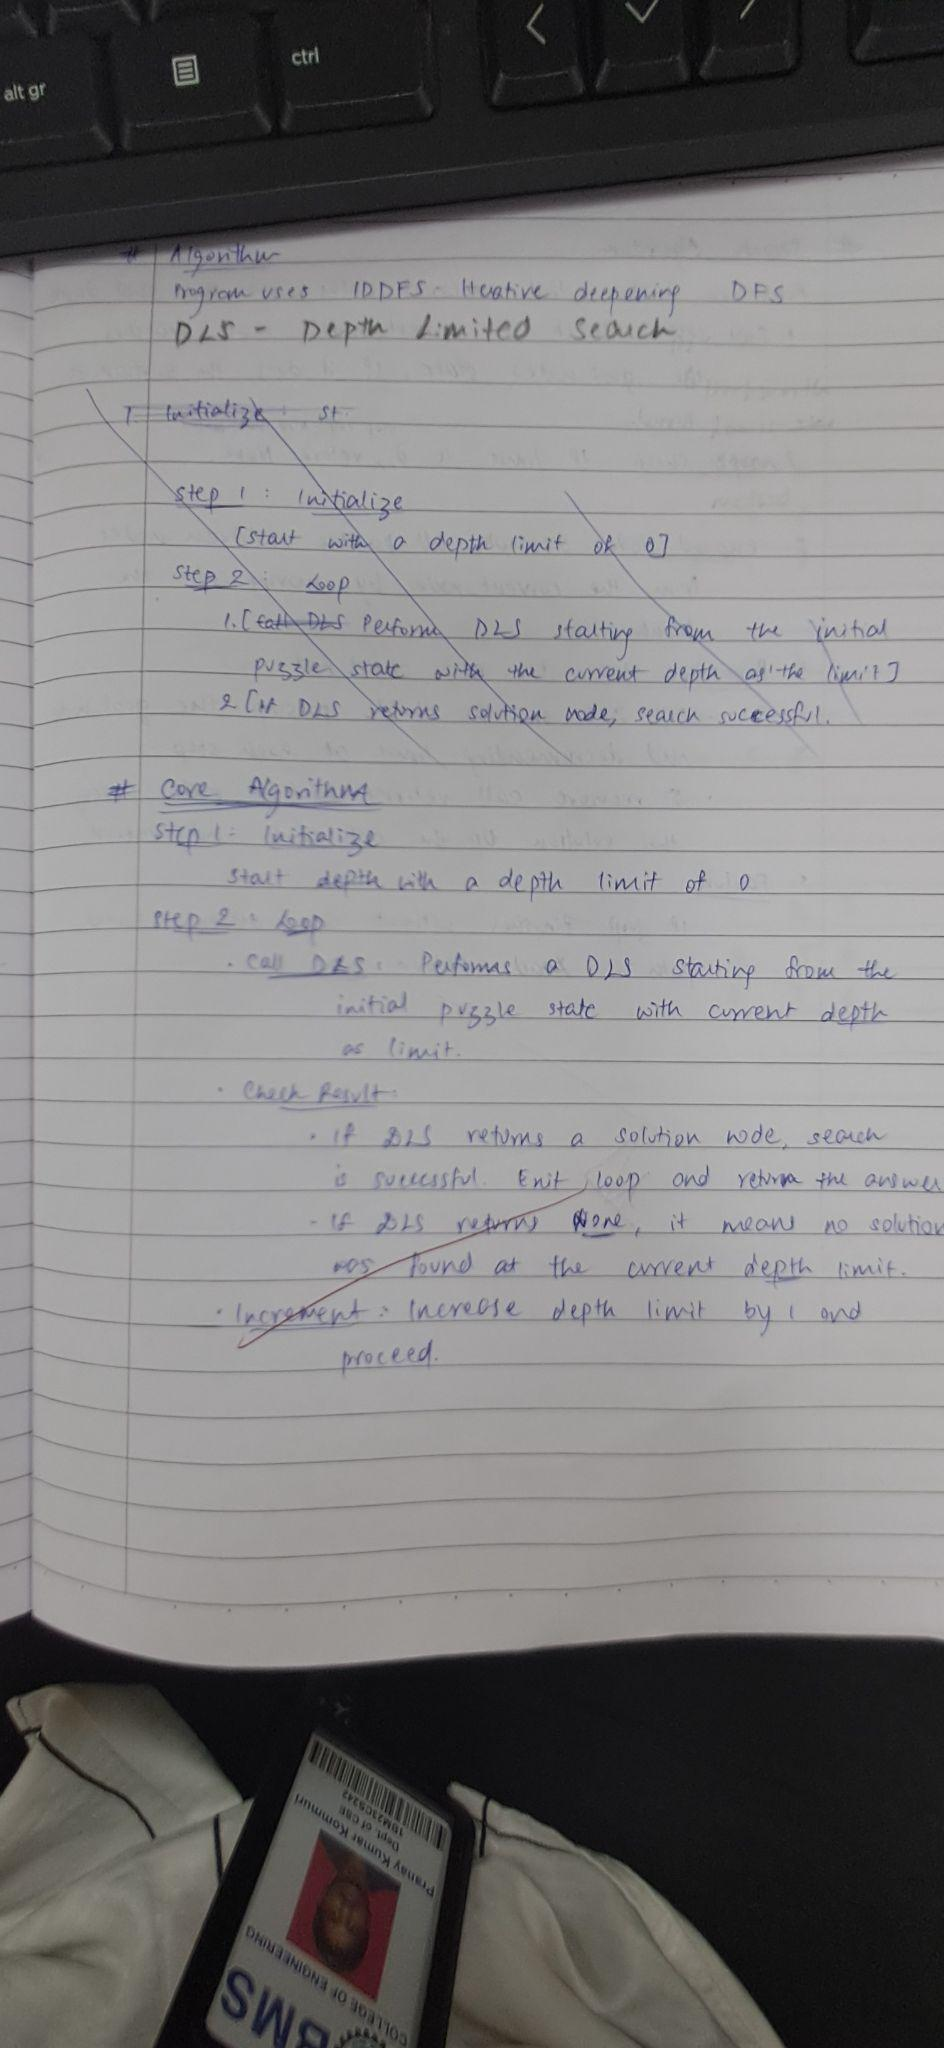 alt gr
ctrl
# Algorithm
Program uses IDDFS - Iterative deepening DFS
DLS - Depth Limited Search
1. Initialize St.
Step 1 : Initialize
[Start with a depth limit of 0]
Step 2 : Loop
1. [Call DLS Perform DLS starting from the initial
puzzle state with the current depth as the limit]
2 [If DLS returns solution node, search successful.
# Core Algorithm
Step 1 : Initialize
Start depth with a depth limit of 0
Step 2 : Loop
· Call DLS : Performs a DLS starting from the
initial puzzle state with current depth
as limit.
· Check Result :
· If DLS returns a solution node, search
is successful. Exit loop and return the answer
- If DLS returns None, it means no solution
was found at the current depth limit.
· Increment : Increase depth limit by 1 and
proceed.
BMS
COLLEGE OF ENGINEERING
Pranay Kumar Kommuri
Dept. of CSE
1BM23CS242